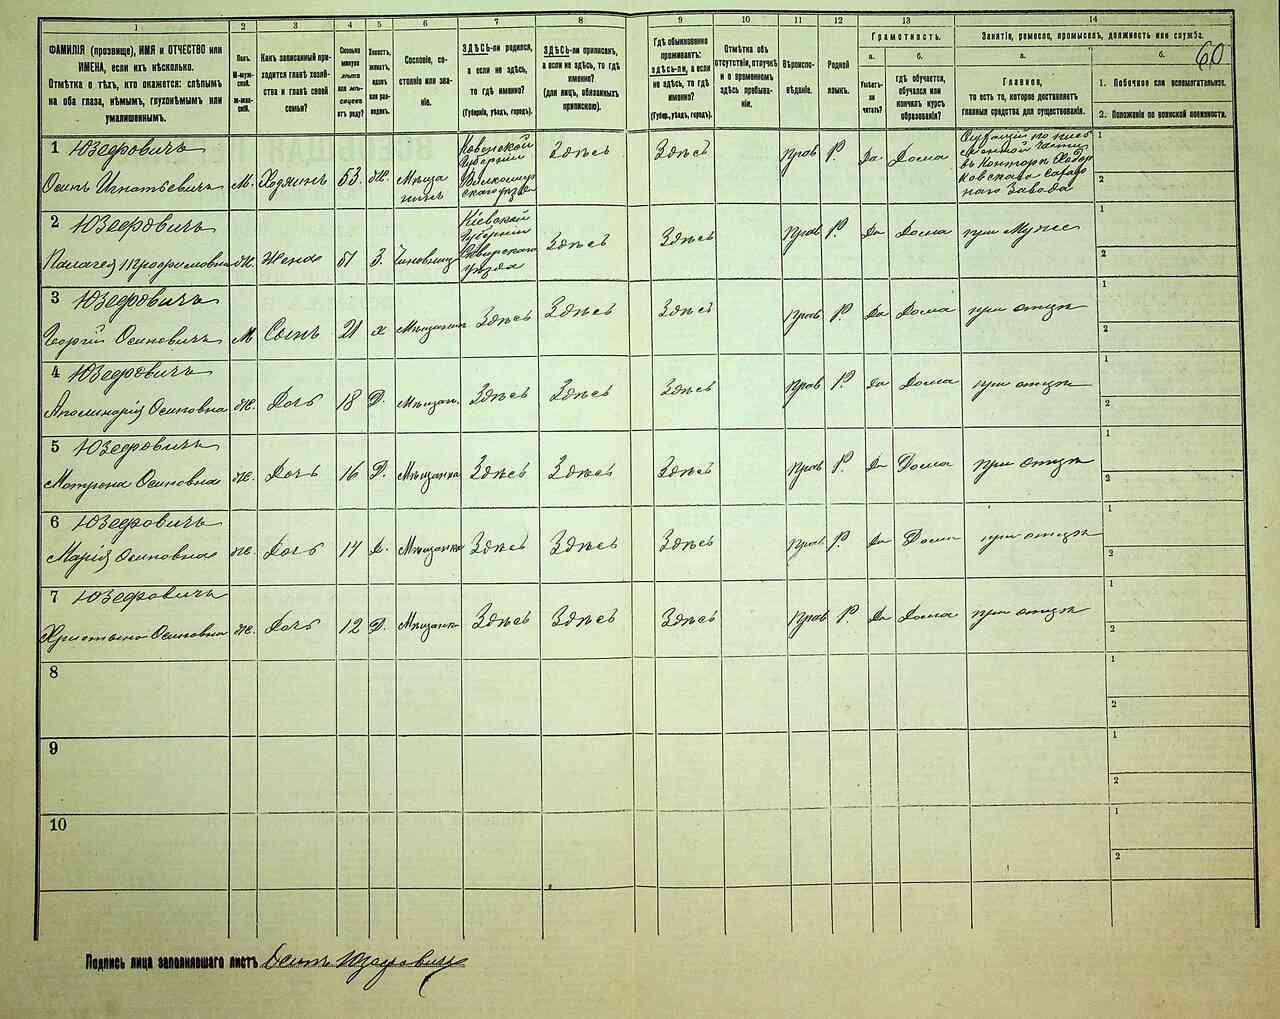 1 2 3 4 5 6 7 8 9 10 11 12 13 14
60
ФАМИЛІЯ (прозвище), ИМЯ и ОТЧЕСТВО или
ИМЕНА, если ихъ нѣсколько.
Отмѣтка о тѣхъ, кто окажется: слѣпымъ
на оба глаза, нѣмымъ, глухонѣмымъ или
умалишеннымъ.
Полъ.
М-муж-
ской.
ж-жен-
скій.
Какъ записанный при-
ходится главѣ хозяй-
ства и главѣ своей
семьи?
Сколько
минуло
лѣтъ
или мѣ-
сяцевъ
отъ роду?
Холостъ,
женатъ,
вдовъ
или раз-
веденъ.
Сословіе, со-
стояніе или зва-
ніе.
ЗДѢСЬ-ли родился,
а если не здѣсь,
то гдѣ именно?
(Губернія, уѣздъ, городъ).
ЗДѢСЬ-ли приписанъ,
а если не здѣсь, то гдѣ
именно?
(для лицъ, обязанныхъ
припискою).
Гдѣ обыкновенно
проживаетъ:
здѣсь-ли, а если
не здѣсь, то гдѣ
именно?
(Губер., уѣздъ, городъ).
Отмѣтка объ
отсутствіи, отлучкѣ
и о временномъ
здѣсь пребыва-
ніи.
Вѣроиспо-
вѣданіе.
Родной
языкъ.
Грамотность.
а.
Умѣетъ-
ли
читать?
б.
гдѣ обучается,
обучался или
кончилъ курсъ
образованія?
Занятіе, ремесло, промыселъ, должность или служба.
а.
Главное,
то есть то, которое доставляетъ
главныя средства для существованія.
б.
1. Побочное или вспомогательное.
2. Положеніе по воинской повинности.
1 Юзефовичъ
Осипъ Игнатьевичъ М. Хозяинъ 53. Ж. Мѣща
нинъ
Ковенской
Губерніи
Вилкомир
скаго уѣзда
Здѣсь Здѣсь Прав Р. Да Дома
Служащій по письм
енной части
въ Конторѣ Ходор
ковскаго Сахар
наго Завода
1
2
2 Юзефовичъ
Палагея Трофимовна Ж. Жена 51 З. Чиновниц
Кіевской
Губерніи
Сквирскаго
Уѣзда
Здѣсь Здѣсь Прав Р. Да Дома при Мужѣ
1
2
3 Юзефовичъ
Георгій Осиповичъ М Сынъ 21 х Мѣщанинъ Здѣсь Здѣсь Здѣсь Прав Р. Да Дома при отцѣ
1
2
4 Юзефовичъ
Аполинарія Осиповна Ж. Дочь 18 Д. Мѣщан. Здѣсь Здѣсь Здѣсь Прав Р. Да Дома при отцѣ
1
2
5 Юзефовичъ
Матрена Осиповна Ж. Дочь 16 Д. Мѣщанка Здѣсь Здѣсь Здѣсь Прав Р. Да Дома при отцѣ
1
2
6 Юзефовичъ
Марія Осиповна Ж. Дочь 14 Д. Мѣщанка Здѣсь Здѣсь Здѣсь Прав. Р. Да Дома при отцѣ
1
2
7 Юзефовичъ
Христина Осиповна Ж. Дочь 12 Д. Мѣщанка Здѣсь Здѣсь Здѣсь Прав Р. Да Дома при отцѣ
1
2
8
1
2
9
1
2
10
1
2
Подпись лица заполнявшаго листъ Осипъ Юзефовичъ